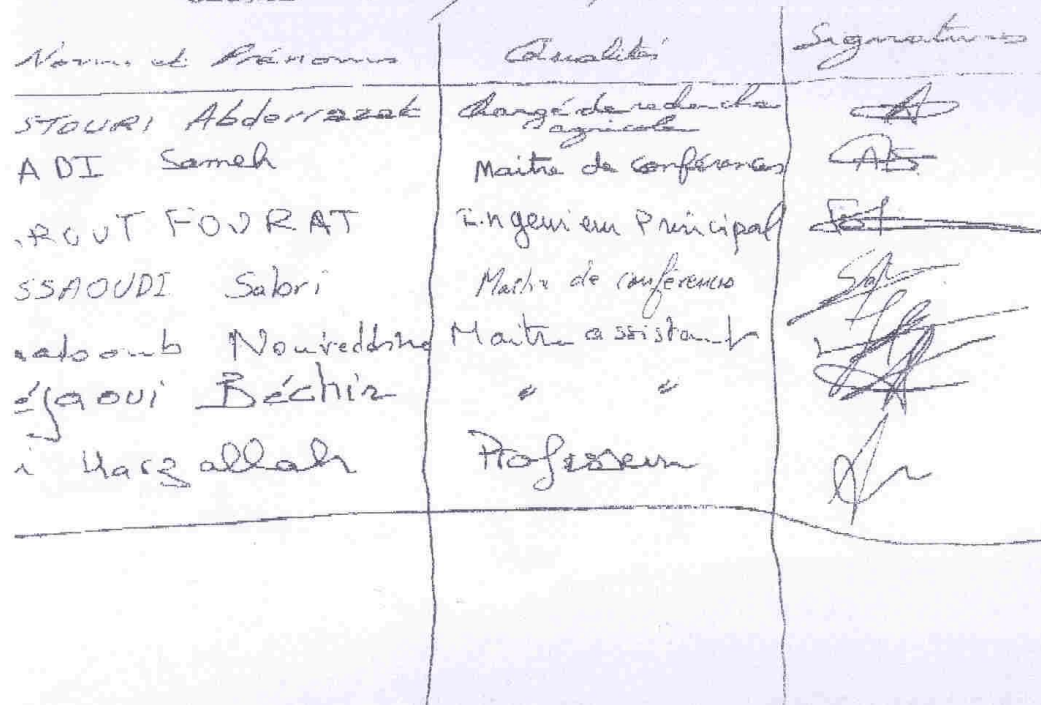 Noms et Prénoms Qualités Signatures
STOURI Abderrazak Chargé de recherche
agricole
ADI Sameh Maitre de conférences
ROUT FOURAT Ingenieur Principal
SSAOUDI Sabri Maitre de conférences
Noureddine Maitre assistant
éjaoui Béchir " "
i Harzallah Professeur